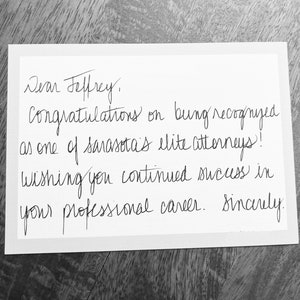 Dear Jeffrey,
Congratulations on being recognized
as one of sarasota's elite attorneys!
Wishing you continued success in
your professional career. Sincerely,